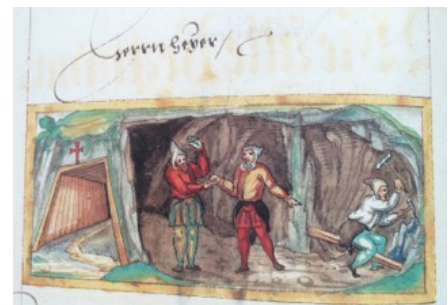 Herrn heyer /